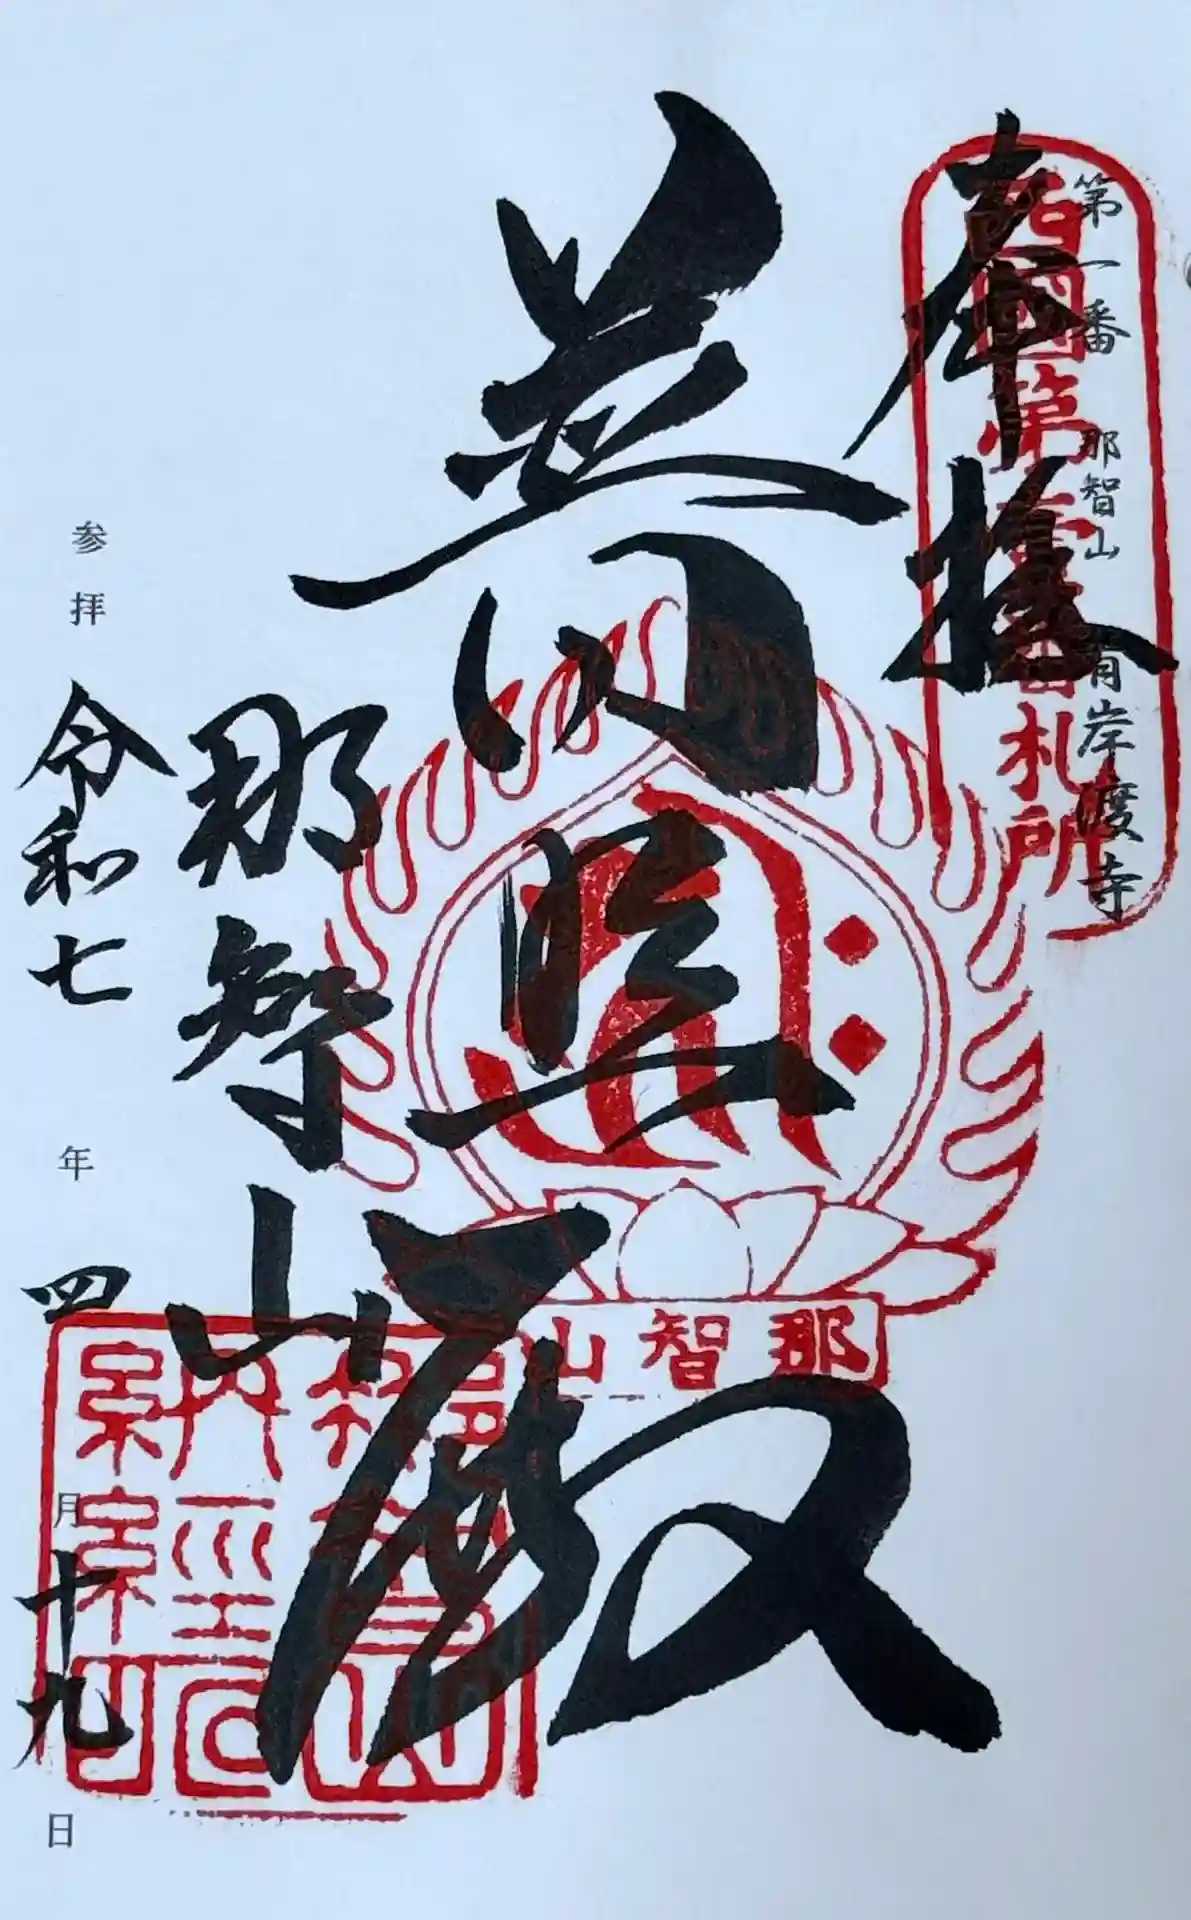 奉拝
西國第壹番札所
第一番 那智山 青岸渡寺
普照殿
那智山
那智山
参拝 令和七年四月十九日